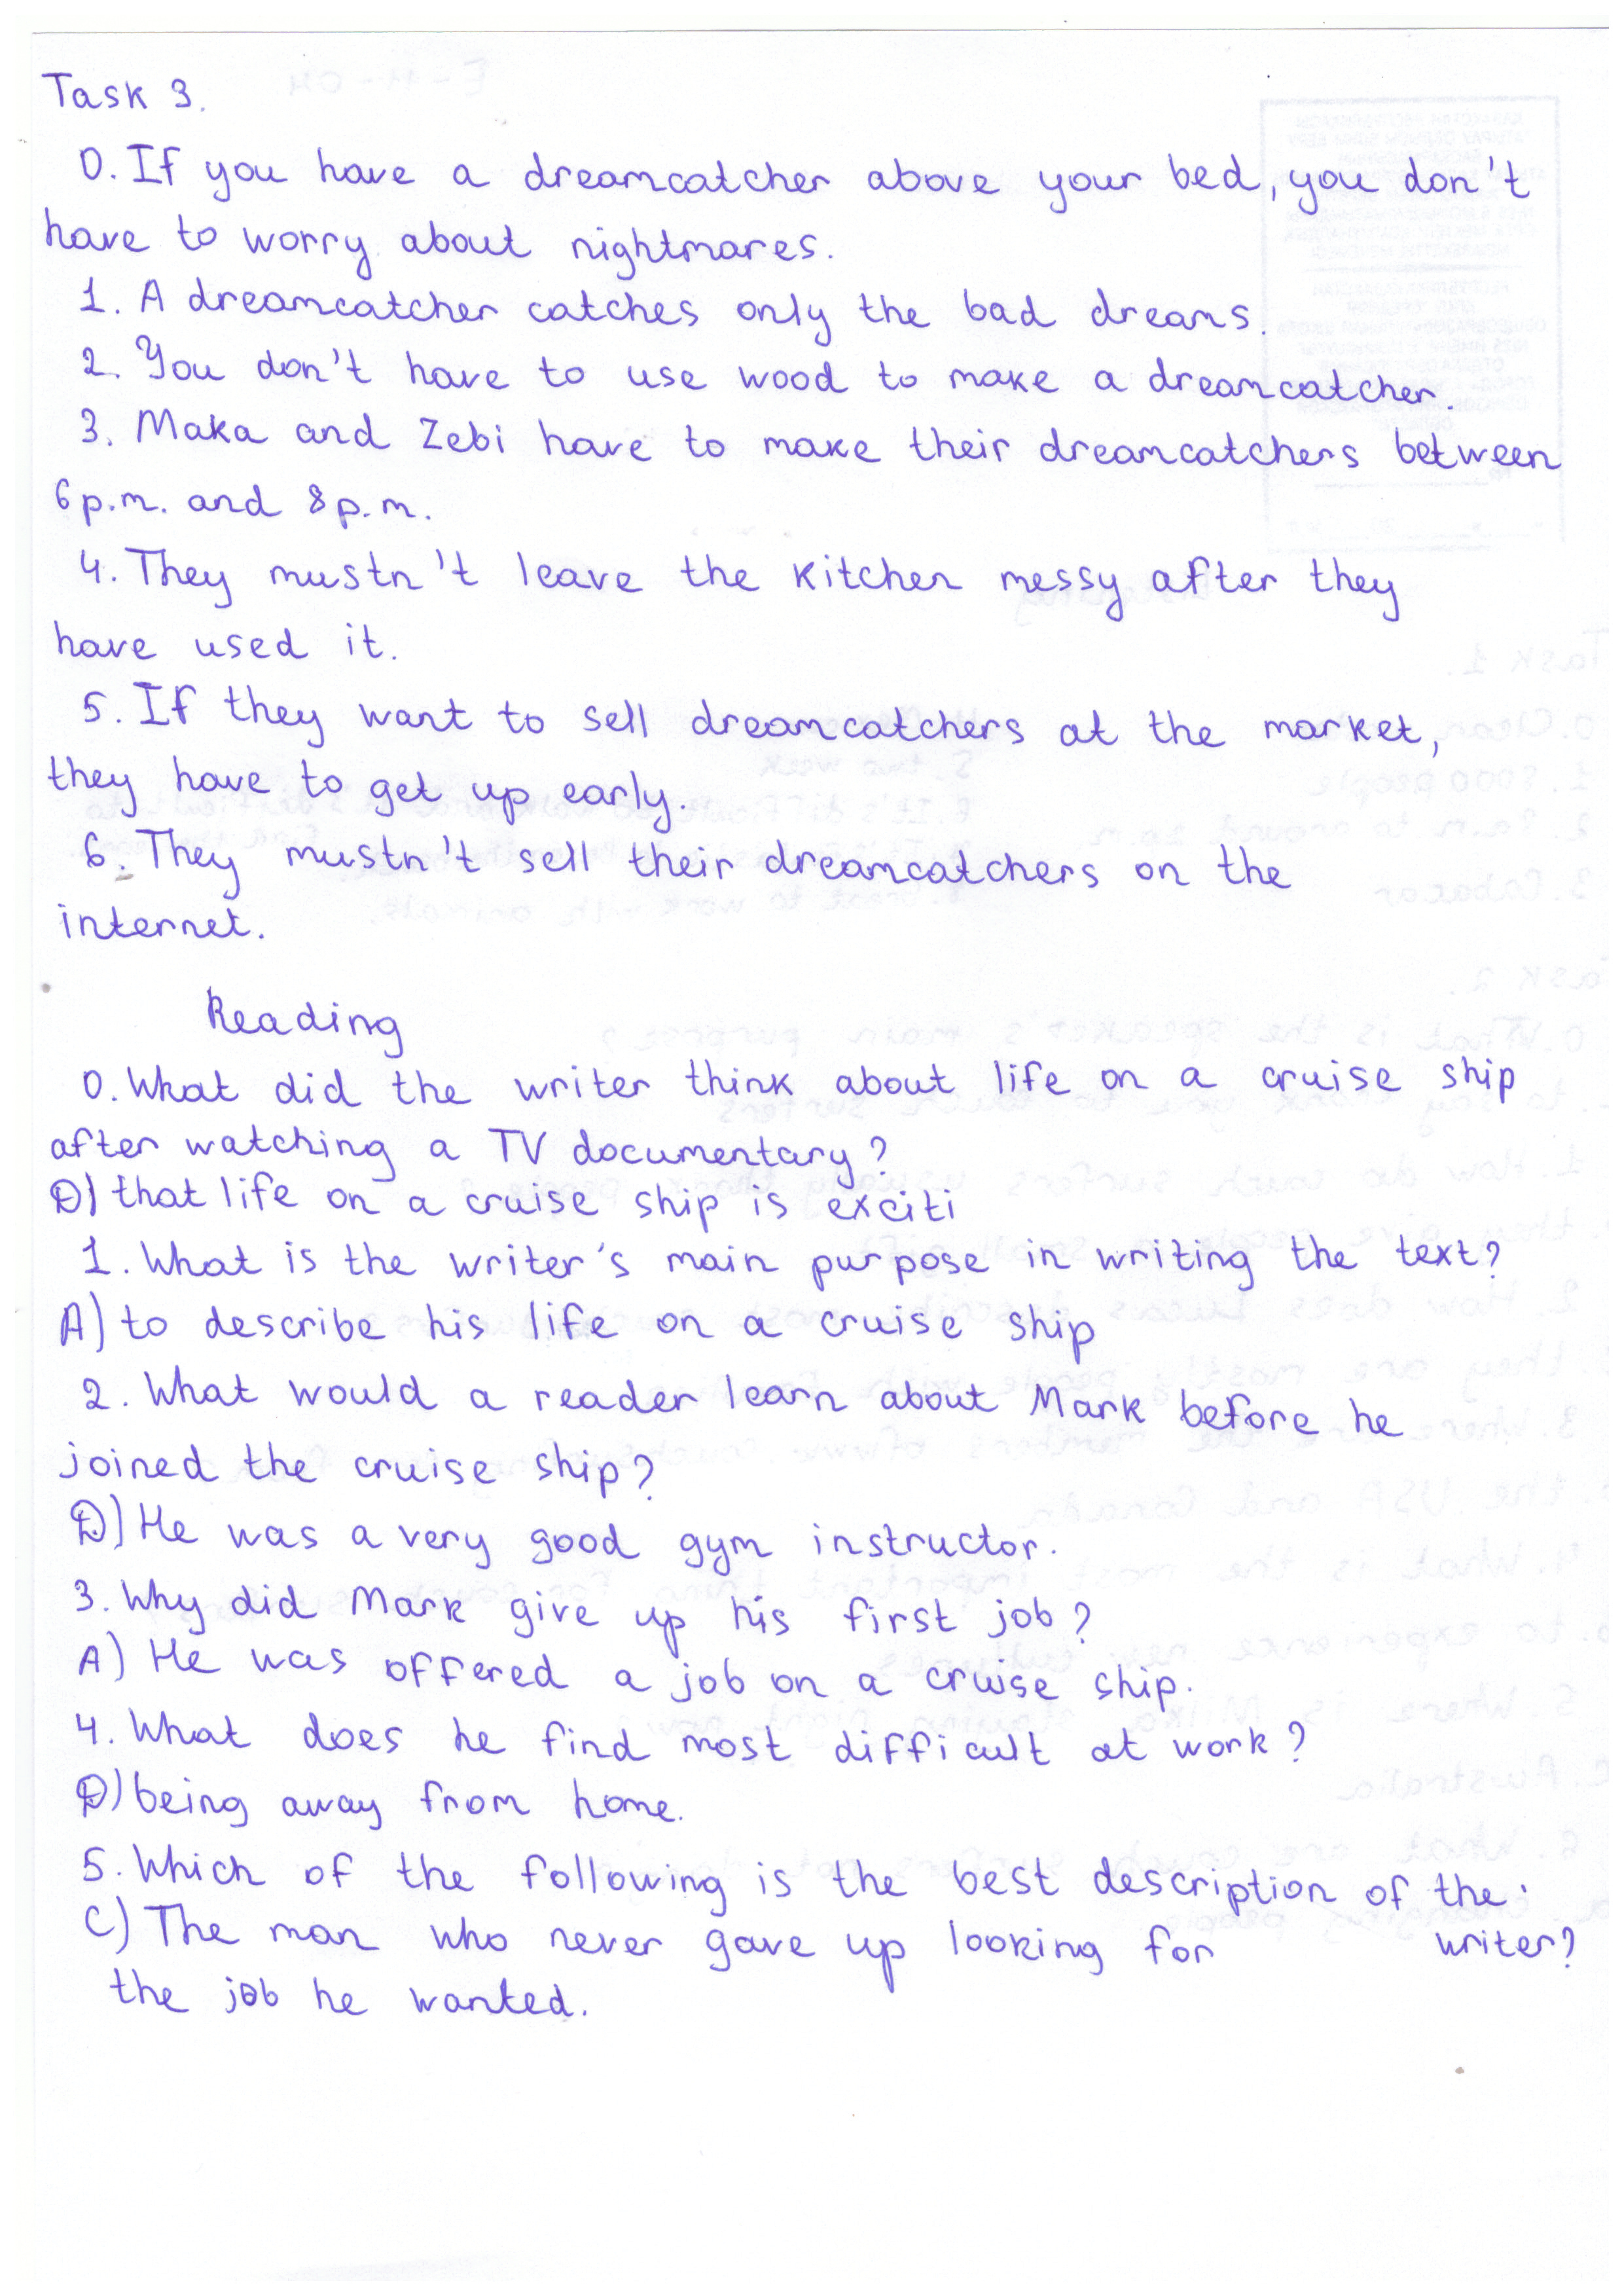 Task 3.
0. If you have a dreamcatcher above your bed, you don't
have to worry about nightmares.
1. A dreamcatcher catches only the bad dreams.
2. You don't have to use wood to make a dreamcatcher.
3. Maka and Zebi have to make their dreamcatchers between
6 p.m. and 8 p.m.
4. They mustn't leave the kitchen messy after they
have used it.
5. If they want to sell dreamcatchers at the market,
they have to get up early.
6. They mustn't sell their dreamcatchers on the
internet.
Reading
0. What did the writer think about life on a cruise ship
after watching a TV documentary?
D) that life on a cruise ship is exciti
1. What is the writer's main purpose in writing the text?
A) to describe his life on a cruise ship
2. What would a reader learn about Mark before he
joined the cruise ship?
D) He was a very good gym instructor.
3. Why did Mark give up his first job?
A) He was offered a job on a cruise ship.
4. What does he find most difficult at work?
D) being away from home.
5. Which of the following is the best description of the
writer?
C) The man who never gave up looking for
the job he wanted.